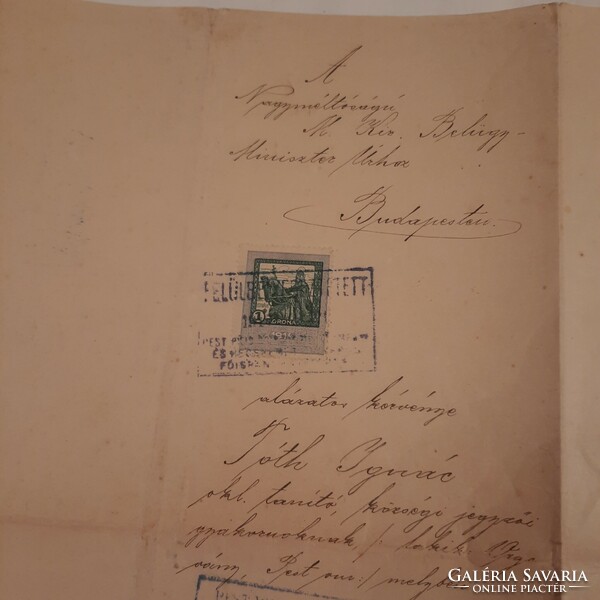 A
Nagyméltóságú
M. Kir. Belügy-
Miniszter Úrhoz
Budapesten.
FELÜLB TETT
1
KORONA
PEST
ÉS KECSKEM
FŐISPÁN
alázatos kérvénye
Tóth Ignác
okl. tanító, községi jegyzői
gyakornoknak, /: lakik Örgo
vány, Pest vm :/ melyben
PEST
GALÉRIA SAVARIA
ONLINE PIACTÉR